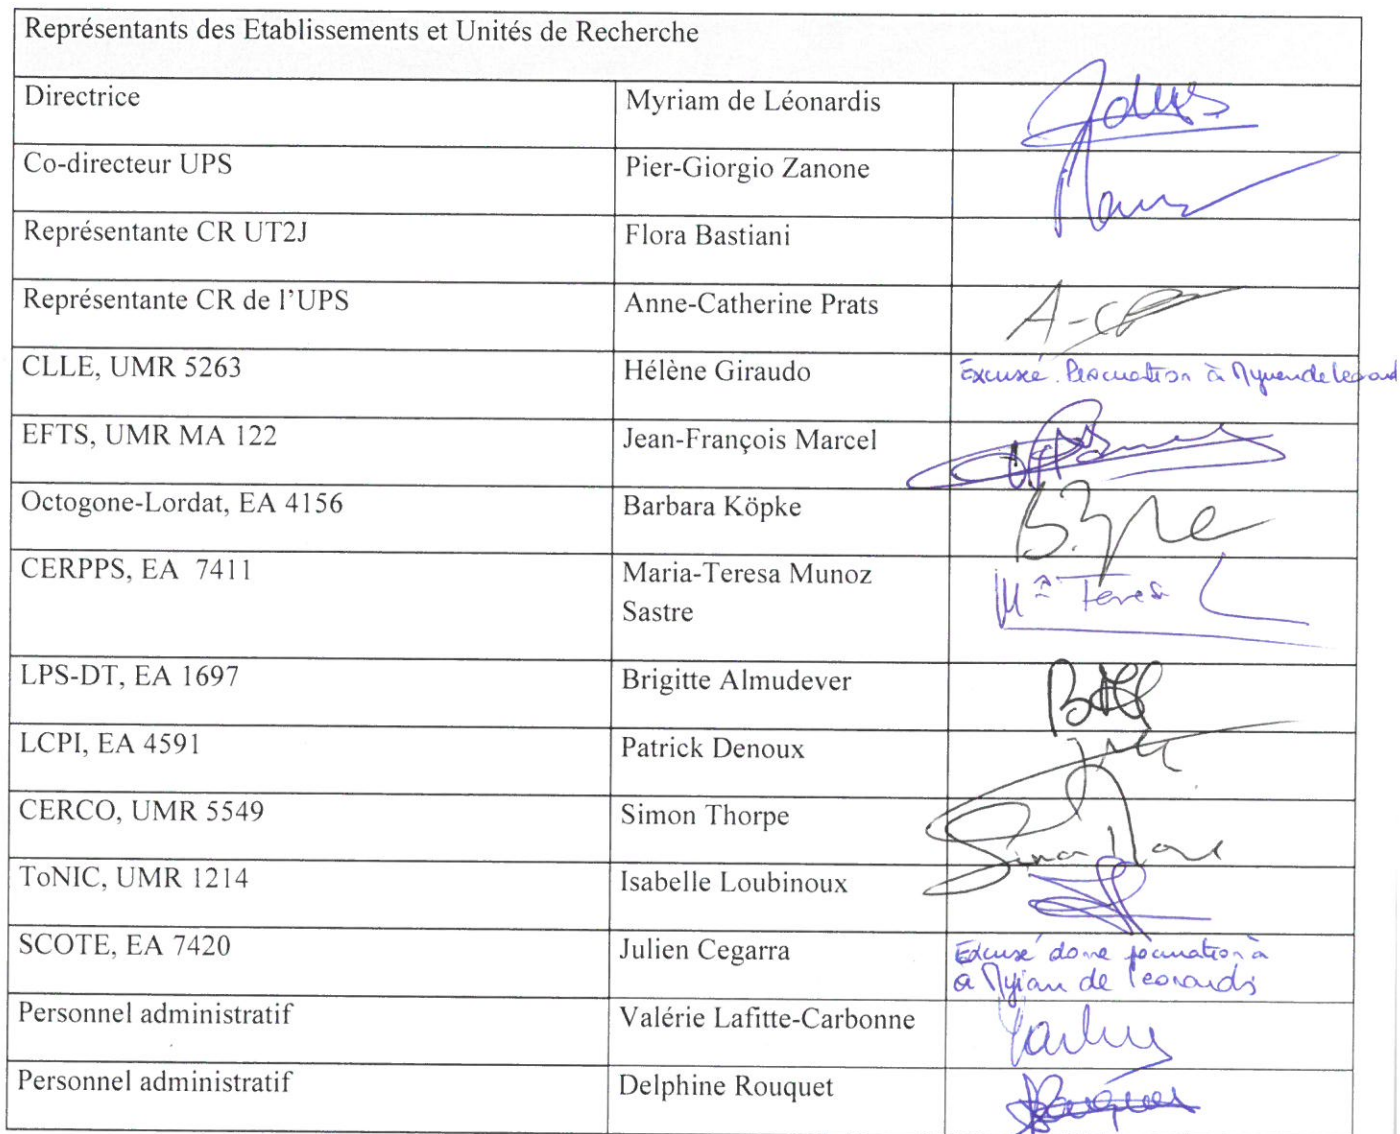 Représentants des Etablissements et Unités de Recherche
Directrice Myriam de Léonardis
Co-directeur UPS Pier-Giorgio Zanone
Représentante CR UT2J Flora Bastiani
Représentante CR de l'UPS Anne-Catherine Prats A-CP
CLLE, UMR 5263 Hélène Giraudo Excusé. à
EFTS, UMR MA 122 Jean-François Marcel
Octogone-Lordat, EA 4156 Barbara Köpke
CERPPS, EA 7411 Maria-Teresa Munoz
Sastre Mª Teresa
LPS-DT, EA 1697 Brigitte Almudever
LCPI, EA 4591 Patrick Denoux
CERCO, UMR 5549 Simon Thorpe
ToNIC, UMR 1214 Isabelle Loubinoux
SCOTE, EA 7420 Julien Cegarra Excusé à
à de
Personnel administratif Valérie Lafitte-Carbonne
Personnel administratif Delphine Rouquet